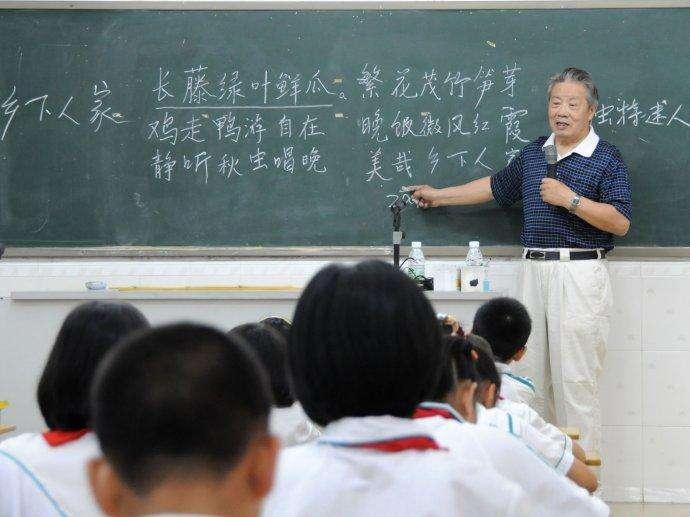 乡下人家
长藤绿叶鲜瓜。繁花茂竹笋芽
鸡走鸭游自在 晚饭微风红霞
静听秋虫唱晚 美哉乡下人家
迷人